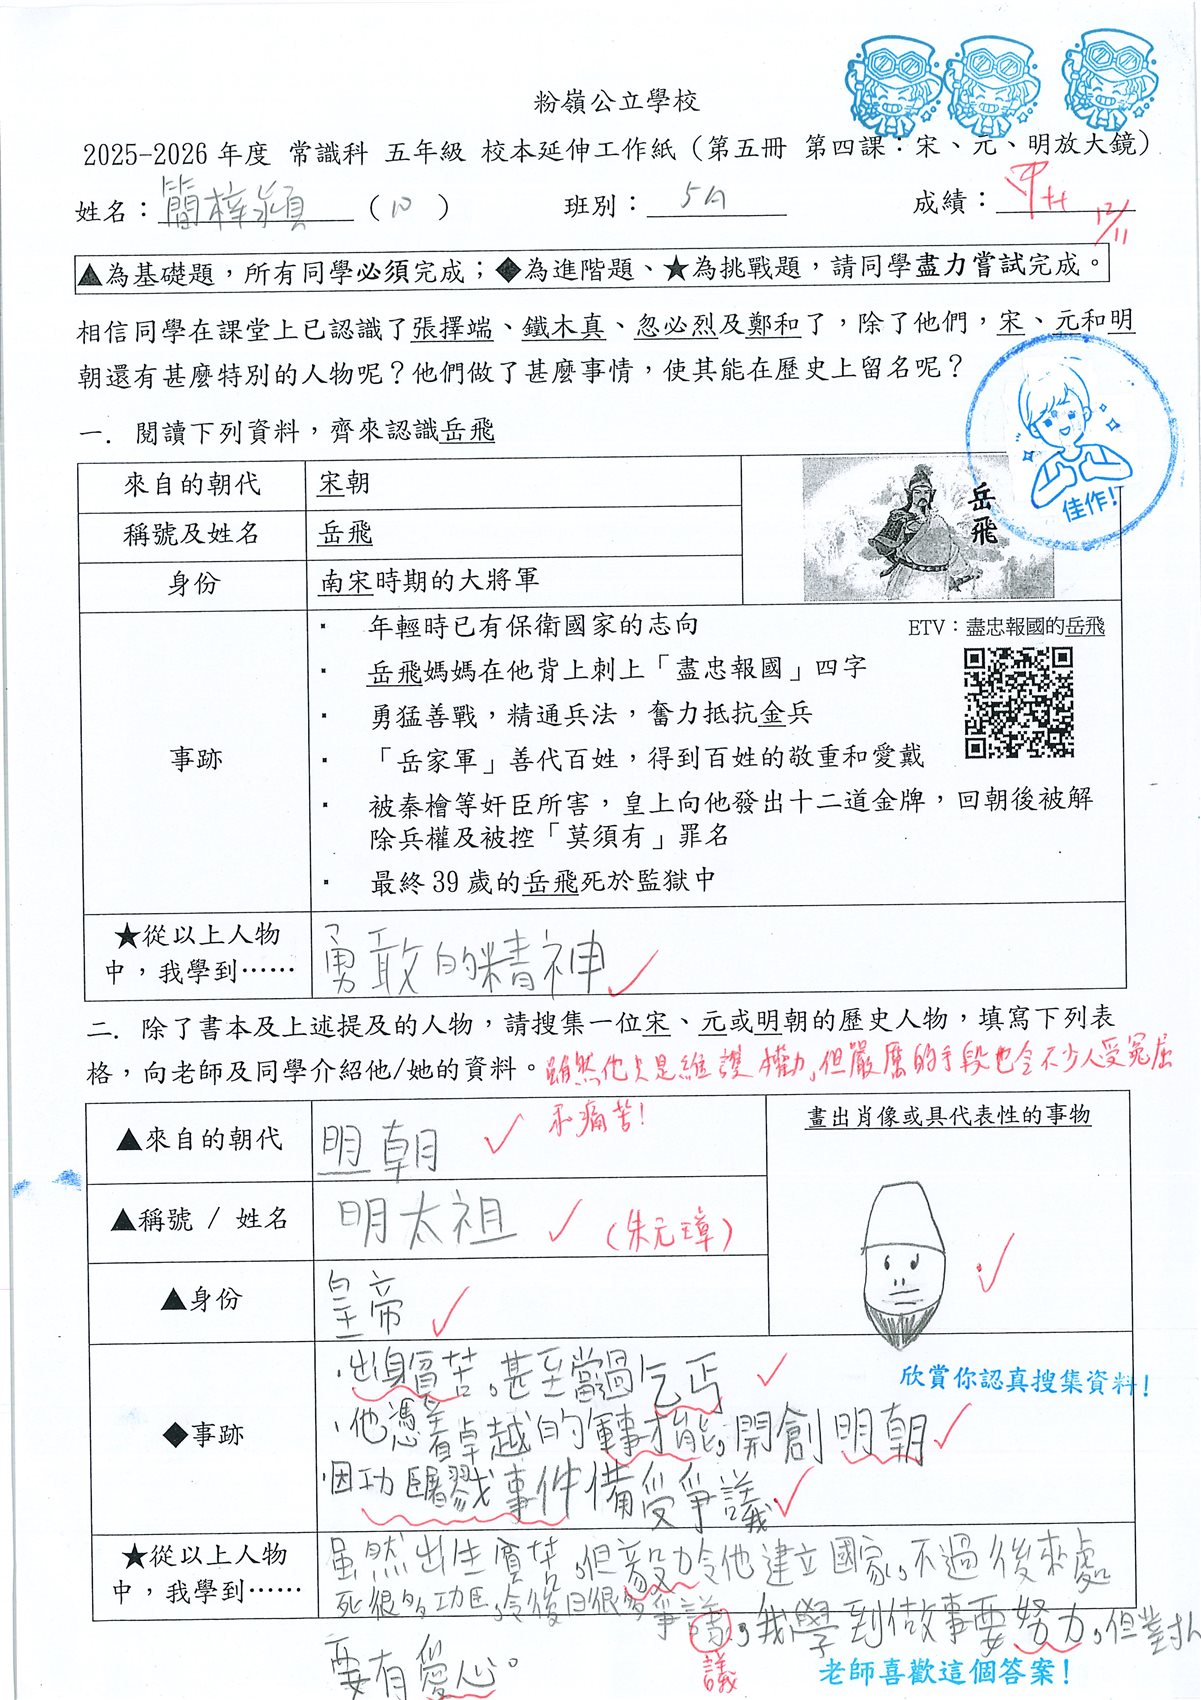 粉嶺公立學校
2025-2026 年度 常識科 五年級 校本延伸工作紙(第五冊 第四課:宋、元、明放大鏡)
姓名:簡梓潁 (10) 班別:5A 成績:甲++
12/11
▲為基礎題,所有同學必須完成;◆為進階題、★為挑戰題,請同學盡力嘗試完成。
相信同學在課堂上已認識了張擇端、鐵木真、忽必烈及鄭和了,除了他們,宋、元和明
朝還有甚麼特別的人物呢?他們做了甚麼事情,使其能在歷史上留名呢?
佳作!
一. 閱讀下列資料,齊來認識岳飛
來自的朝代 宋朝
岳飛
稱號及姓名 岳飛
身份 南宋時期的大將軍
事跡
· 年輕時已有保衛國家的志向
ETV:盡忠報國的岳飛
· 岳飛媽媽在他背上刺上「盡忠報國」四字
· 勇猛善戰,精通兵法,奮力抵抗金兵
· 「岳家軍」善代百姓,得到百姓的敬重和愛戴
· 被秦檜等奸臣所害,皇上向他發出十二道金牌,回朝後被解
除兵權及被控「莫須有」罪名
· 最終 39 歲的岳飛死於監獄中
★從以上人物
中,我學到……
勇敢的精神
二. 除了書本及上述提及的人物,請搜集一位宋、元或明朝的歷史人物,填寫下列表
格,向老師及同學介紹他/她的資料。
雖然他只是維護權力,但嚴厲的手段也令不少人受冤屈
和痛苦!
▲來自的朝代 明朝
畫出肖像或具代表性的事物
▲稱號 / 姓名 明太祖 (朱元璋)
▲身份 皇帝
◆事跡
·出身貧苦,甚至當過乞丐
欣賞你認真搜集資料!
·他憑着卓越的軍事才能,開創明朝
·因功臣屠戮事件備受爭議
★從以上人物
中,我學到……
雖然出生貧苦,但毅力令他建立國家,不過後來處
死很多功臣,令後日很多爭議,我學到做事要努力,但對人
議
要有愛心。
老師喜歡這個答案!